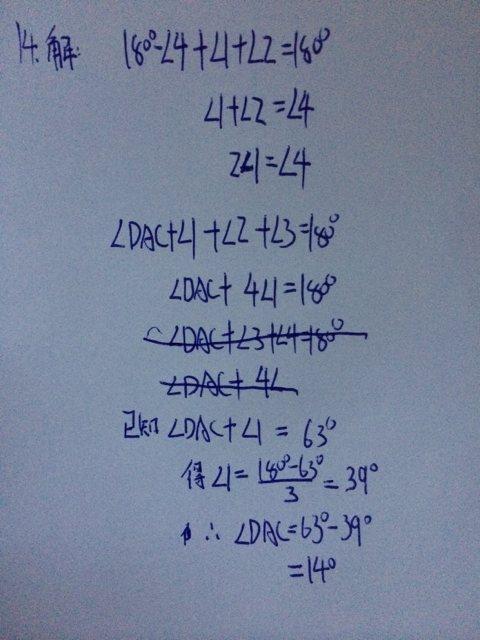 14.解: 180°-∠4+∠1+∠2=180°
∠1+∠2=∠4
2∠1=∠4
∠DAC+∠1+∠2+∠3=180°
∠DAC+4∠1=180°
∠DAC+∠3+∠4=180°
∠DAC+4∠
已知∠DAC+∠1=63°
得∠1=\frac{180°-63°}{3}=39°
∴∠DAC=63°-39°
=14°